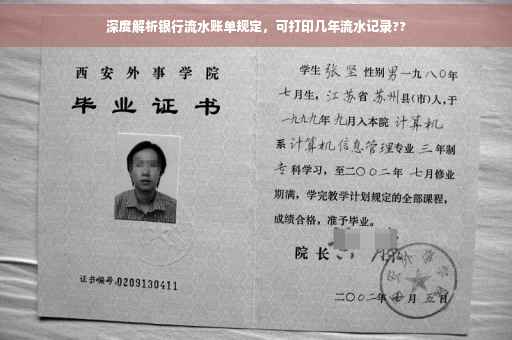 深度解析银行流水账单规定，可打印几年流水记录??
西安外事学院
毕业证书
证书编号:0209130411
学生张坚性别男一九八〇年
七月生，江苏省苏州县(市)人,于
一九九九年九月入本院计算机
系计算机信息管理专业三年制
专科学习，至二〇〇二年七月修业
期满，学完教学计划规定的全部课程，
成绩合格，准予毕业。
院长
二〇〇二年 月五日